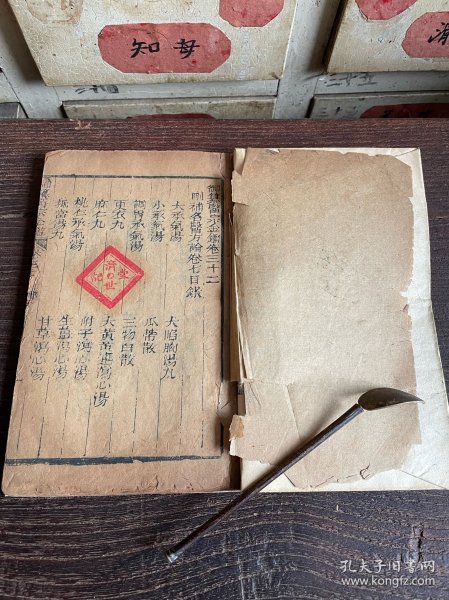 知母
御纂醫宗金鑑卷三十二
刪補名醫方論卷七目錄
大承氣湯　大陷胸湯丸
小承氣湯　瓜蒂散
調胃承氣湯　三物白散
更衣丸　大黃黃連瀉心湯
麻仁丸　附子瀉心湯
桃仁承氣湯　生薑瀉心湯
抵當湯丸　甘草瀉心湯
濟世
孔夫子旧书网